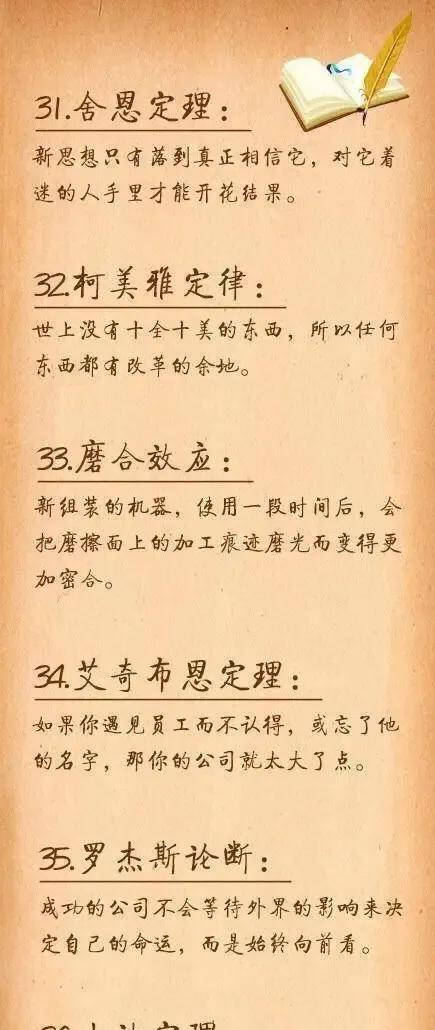 31.舍恩定理：
新思想只有落到真正相信它，对它着
迷的人手里才能开花结果。
32.柯美雅定律：
世上没有十全十美的东西，所以任何
东西都有改革的余地。
33.磨合效应：
新组装的机器，使用一段时间后，会
把磨擦面上的加工痕迹磨光而变得更
加密合。
34.艾奇布恩定理：
如果你遇见员工而不认得，或忘了他
的名字，那你的公司就太大了点。
35.罗杰斯论断：
成功的公司不会等待外界的影响来决
定自己的命运，而是始终向前看。